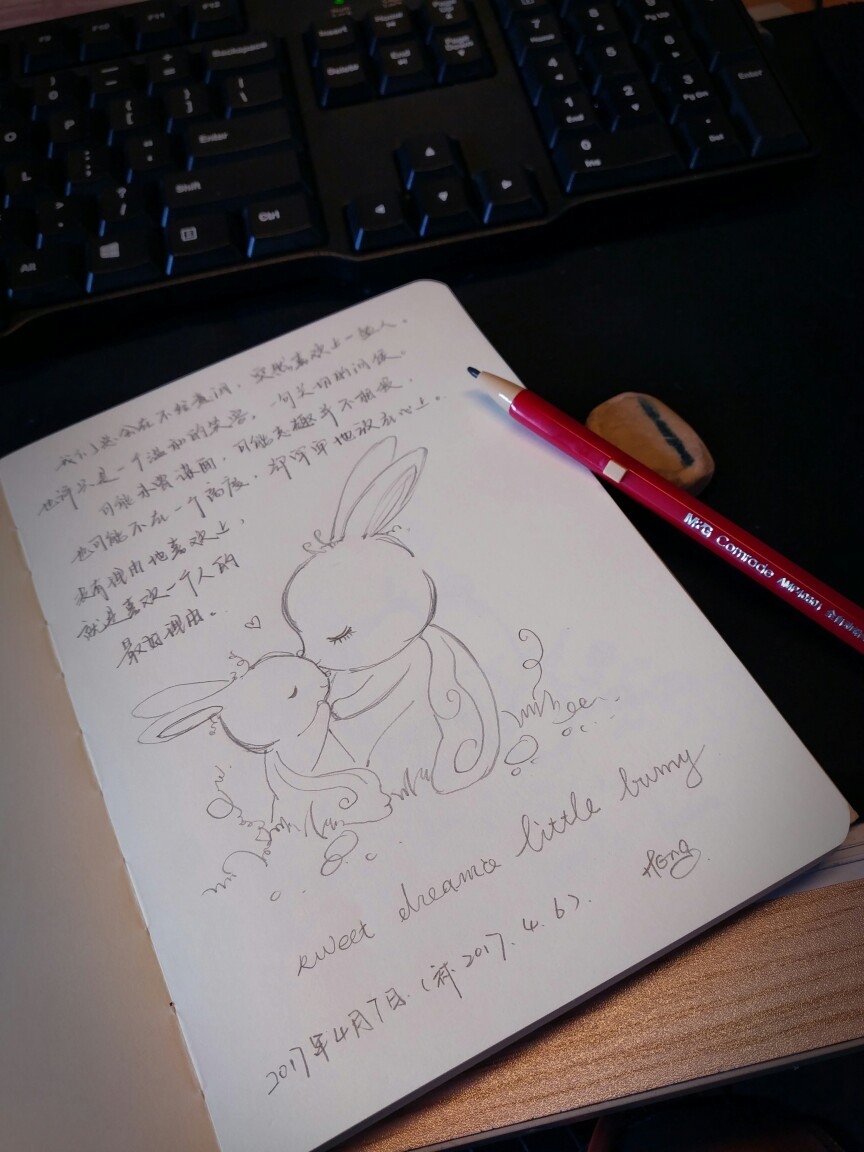 F9 F10 F11 F12
Backspace
Insert Home Page
Delete End Page
7 Home 8 9 Pg Up
4 5 6
1 End 2 3 Pg Dn
0 Ins . Del
Enter
O P { [ } ] | \
L : ; " ' Enter
> . ? / Shift
Alt Ctrl
我们总会在不经意间,突然喜欢上一些人。
也许只是一个温和的笑容,一句关切的问候。
可能未曾谋面,可能志趣并不相投,
也可能不在一个高度,却牢牢地放在心上。
没有理由地喜欢上,
就是喜欢一个人的
最好理由。
sweet dreams little bunny
Hong
2017年4月7日.(补 2017.4.6).
M&G Comrade